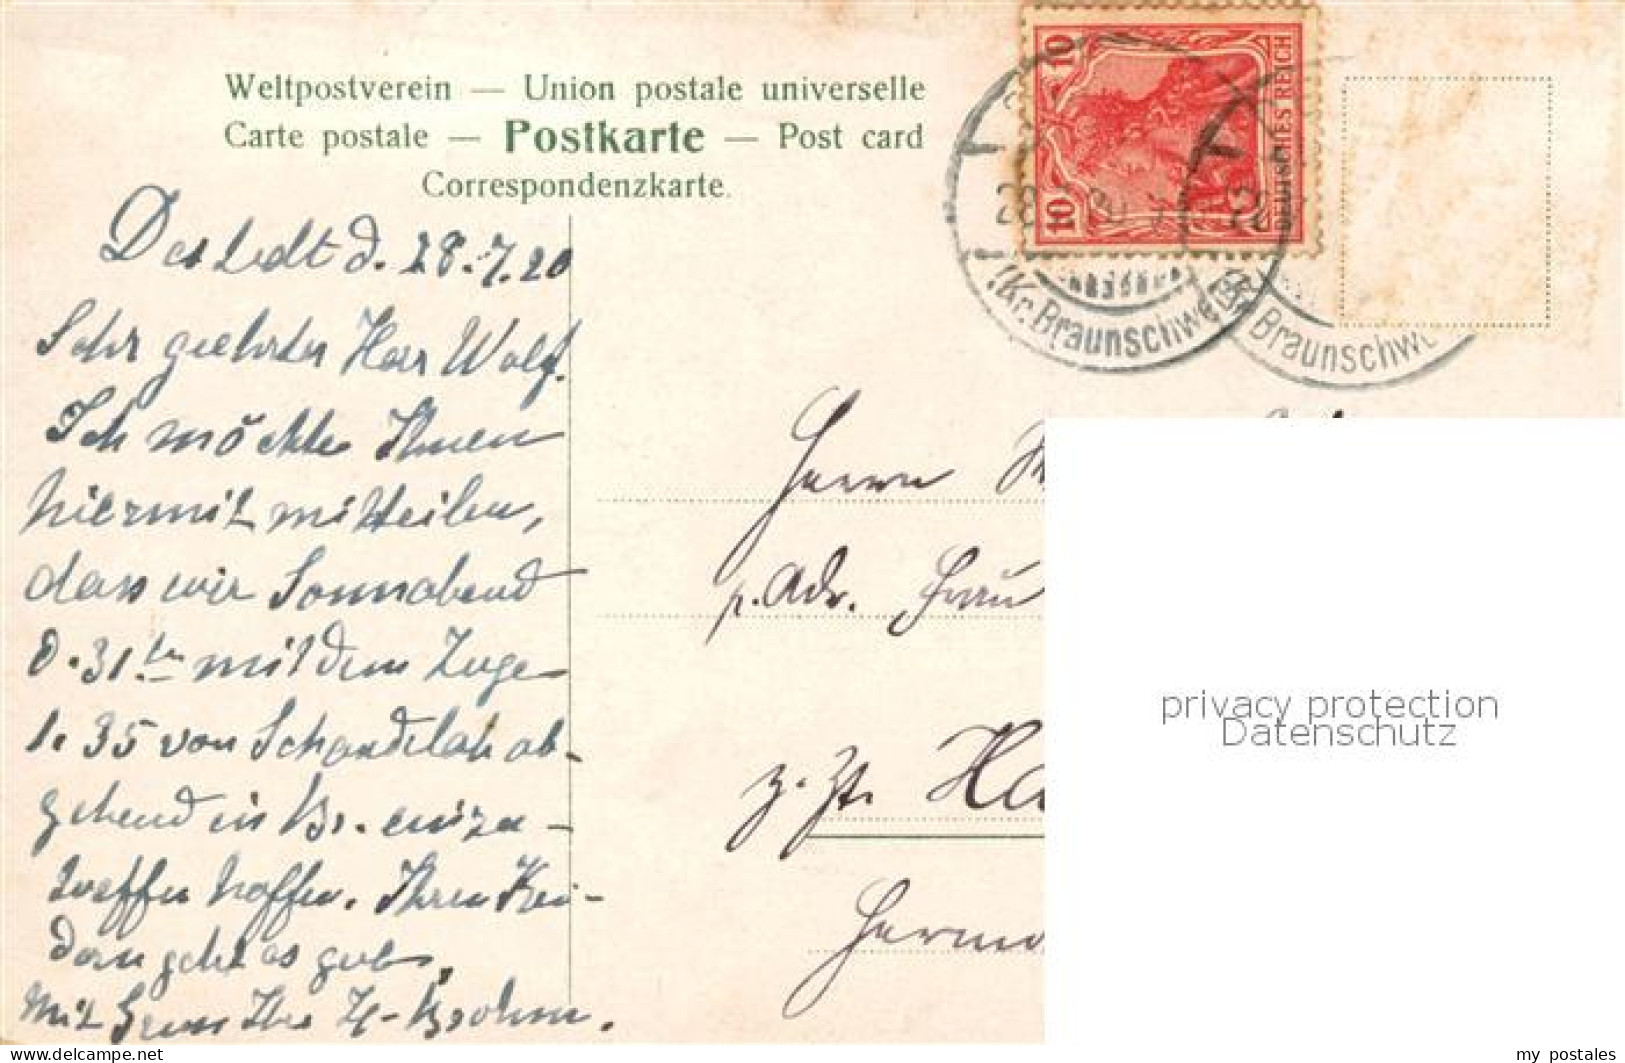 Weltpostverein — Union postale universelle
Carte postale — Postkarte — Post card
Correspondenzkarte.
10
10
DEUTSCHES REICH
28
(Kr. Braunschweig
Braunschw
Destedt d. 28.7.20
Sehr geehrter Herr Wolf.
Ich möchte Ihnen
hiermit mitteilen,
dass wir Sonnabend
d. 31ten mit dem Zuge
1.35 von Schandelah ab-
gehend in Br. einzu-
treffen hoffen. Ihren Kin-
dern geht es gut.
Mit Gruss Ihr H. Brohm.
Herrn
p. Adr. Frau
z. Zt. Ha
Herm
privacy protection
Datenschutz
www.delcampe.net
my_postales